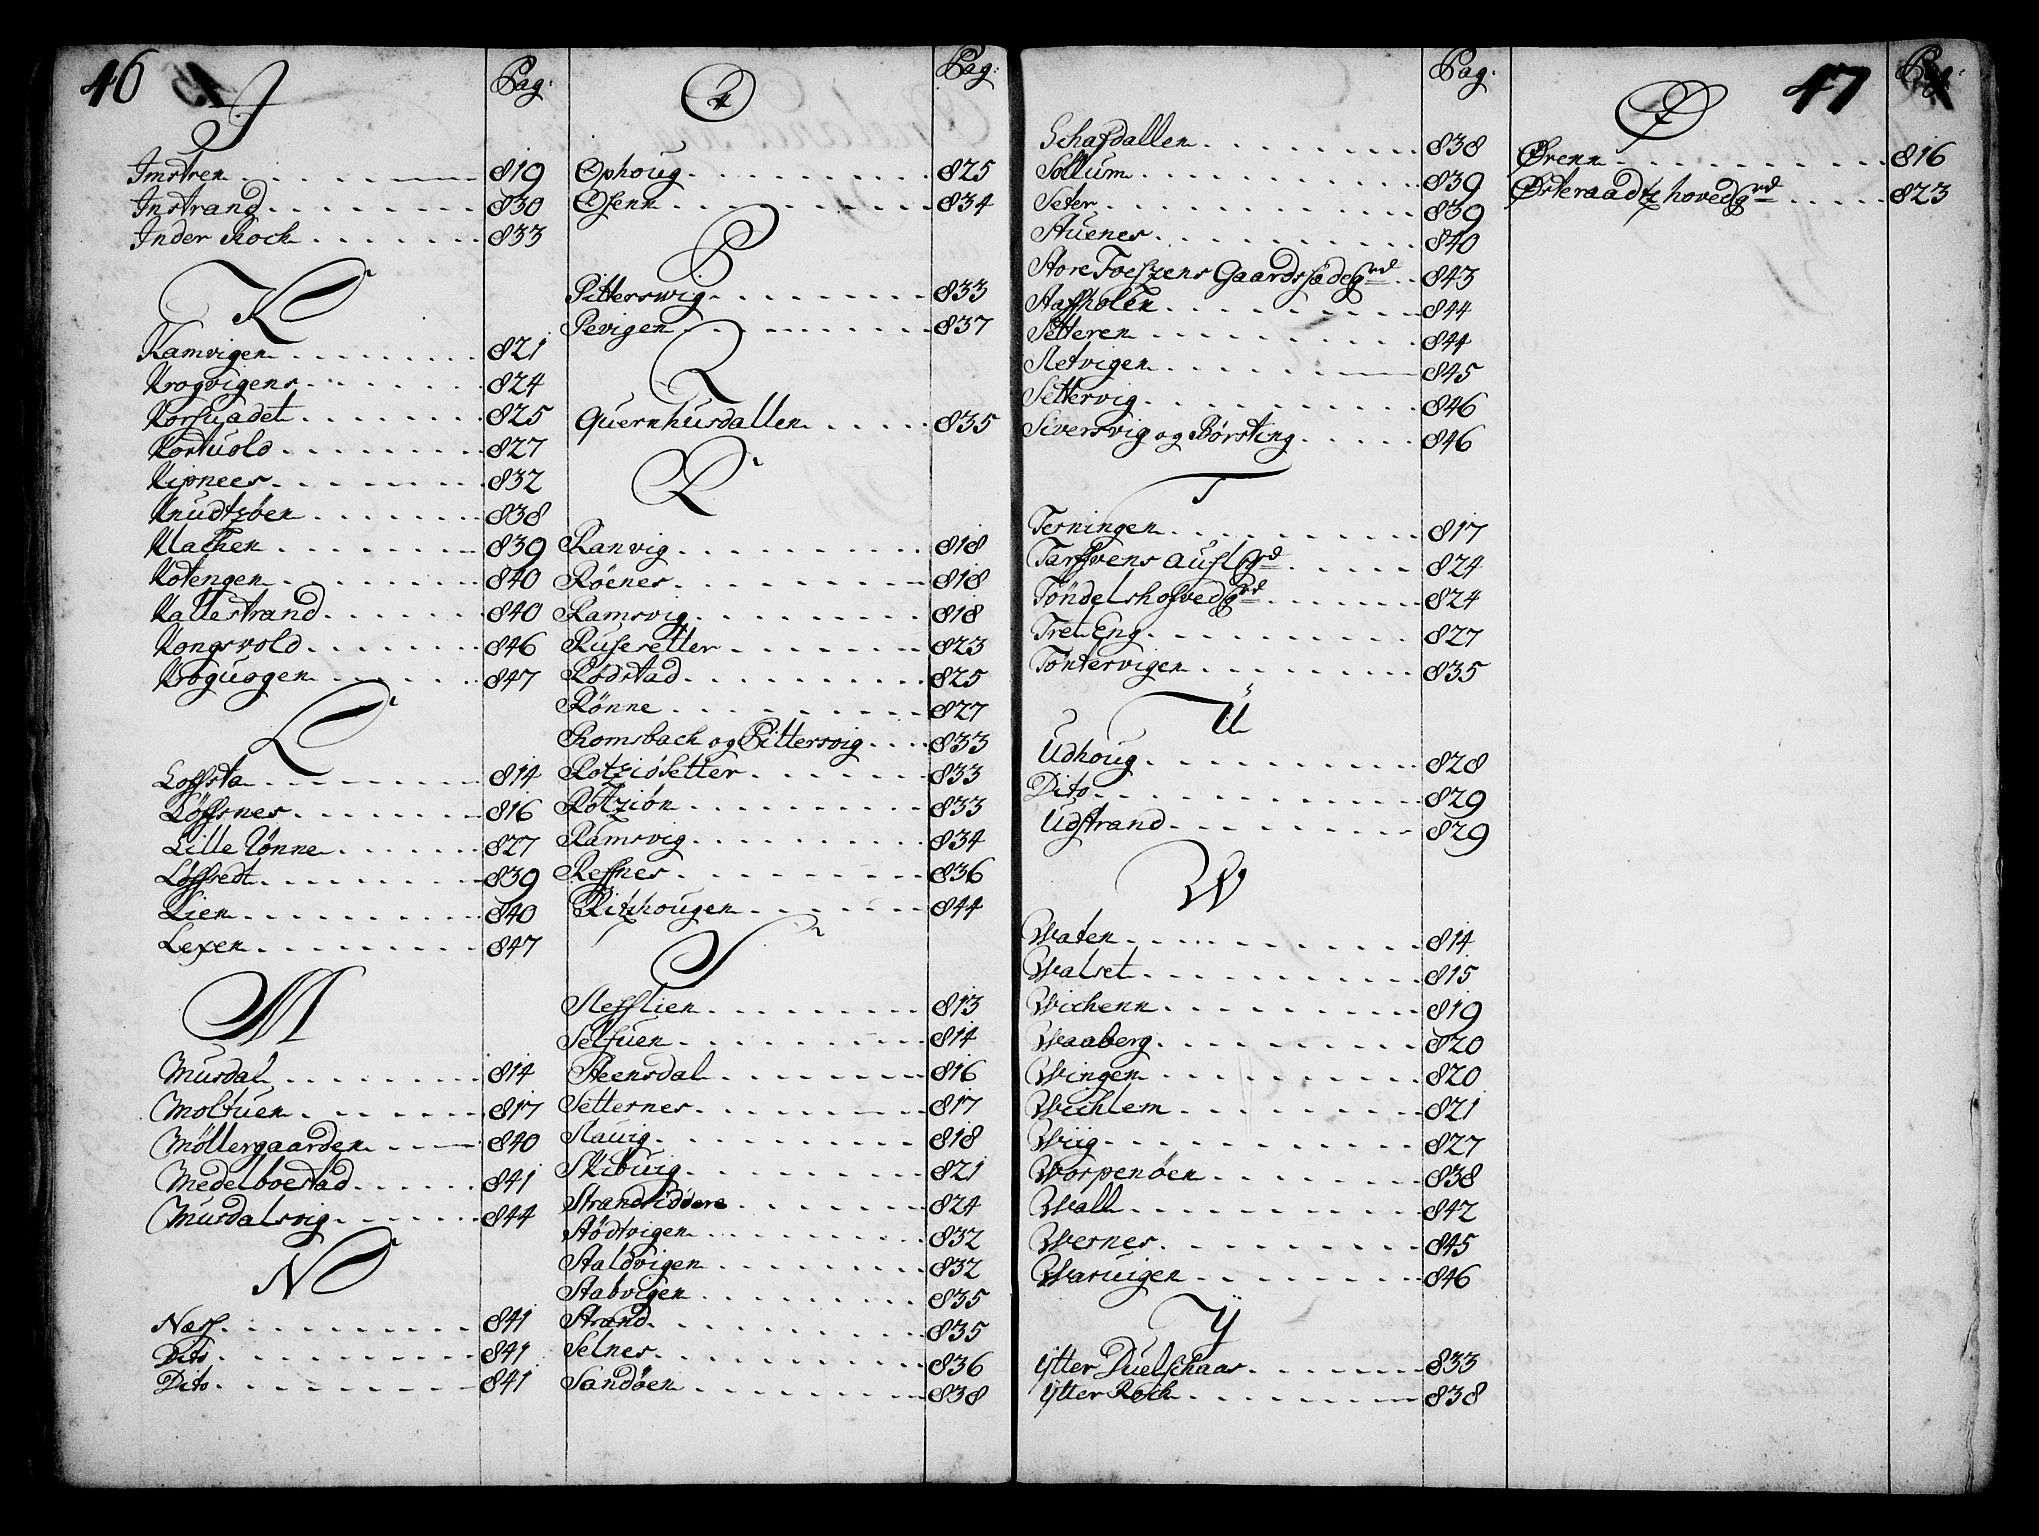 46
Pag:
J
Imstren 819
Instrand 830
Inder Roch 833
K
Kamvigen 821
Krogvigens 824
Korsuadet 825
Kortuold 827
Kipnees 832
Knudtzöen 838
Klacken 839
Kotengen 840
Kallestrand 840
Kongsvold 846
Kroguogen 847
L
Lossta 814
Lössnes 816
Lille Rönne 827
Lössedt 839
Lien 840
Lexen 847
M
Musdal 814
Moltuen 817
Möllergaarden 840
Medelboestad 841
Musdalsvig 844
N
Næss 841
Dito 841
Dito 841
Pag:
O
Ophoug 825
Osenn 834
P
Pitterswig 833
Pevigen 837
Q
Quernhusdallen 835
R
Ranvig 818
Röenes 818
Ramsvig 818
Rusesetter 823
Rödstad 825
Rönne 827
Romsbach og Pittersvig 833
Rotziösetter 833
Rotziön 833
Ramsvig 834
Ressnes 836
Ritzhougen 844
S
Slefslien 813
Selfuen 814
Steensdal 816
Setternes 817
Slauig 818
Skibuig 821
Strand 824
Stödtvigen 832
Staldvigen 832
Stabvigen 835
Strand 835
Selnes 836
Sandöen 838
Pag:
Schafdallen 838
Sollum 839
Seter 839
Stuenes 840
Store Foeszens Gaards sædeGrd 843
Stafsholen 844
Setteren 844
Sletvigen 845
Settervig 846
Siversvig og Börsting 846
T
Terningen 817
Tarfsvens auflGrd 824
Töndels hofvedGrd 824
Tret Eng 827
Töntervigen 835
U
Udhoug 828
Dito 829
Udstrand 829
W
Waten 814
Walset 815
Wichenn 819
Waaberg 820
Wingen 820
Wichlem 821
Wiig 827
Worpenöen 838
Wall 842
Wernes 845
Waruigen 846
Y
Ytter Duelschaar 833
Ytter Roch 838
47
Pag:
Ø
Ørenn 816
Østeraadtz hovedGrd 823